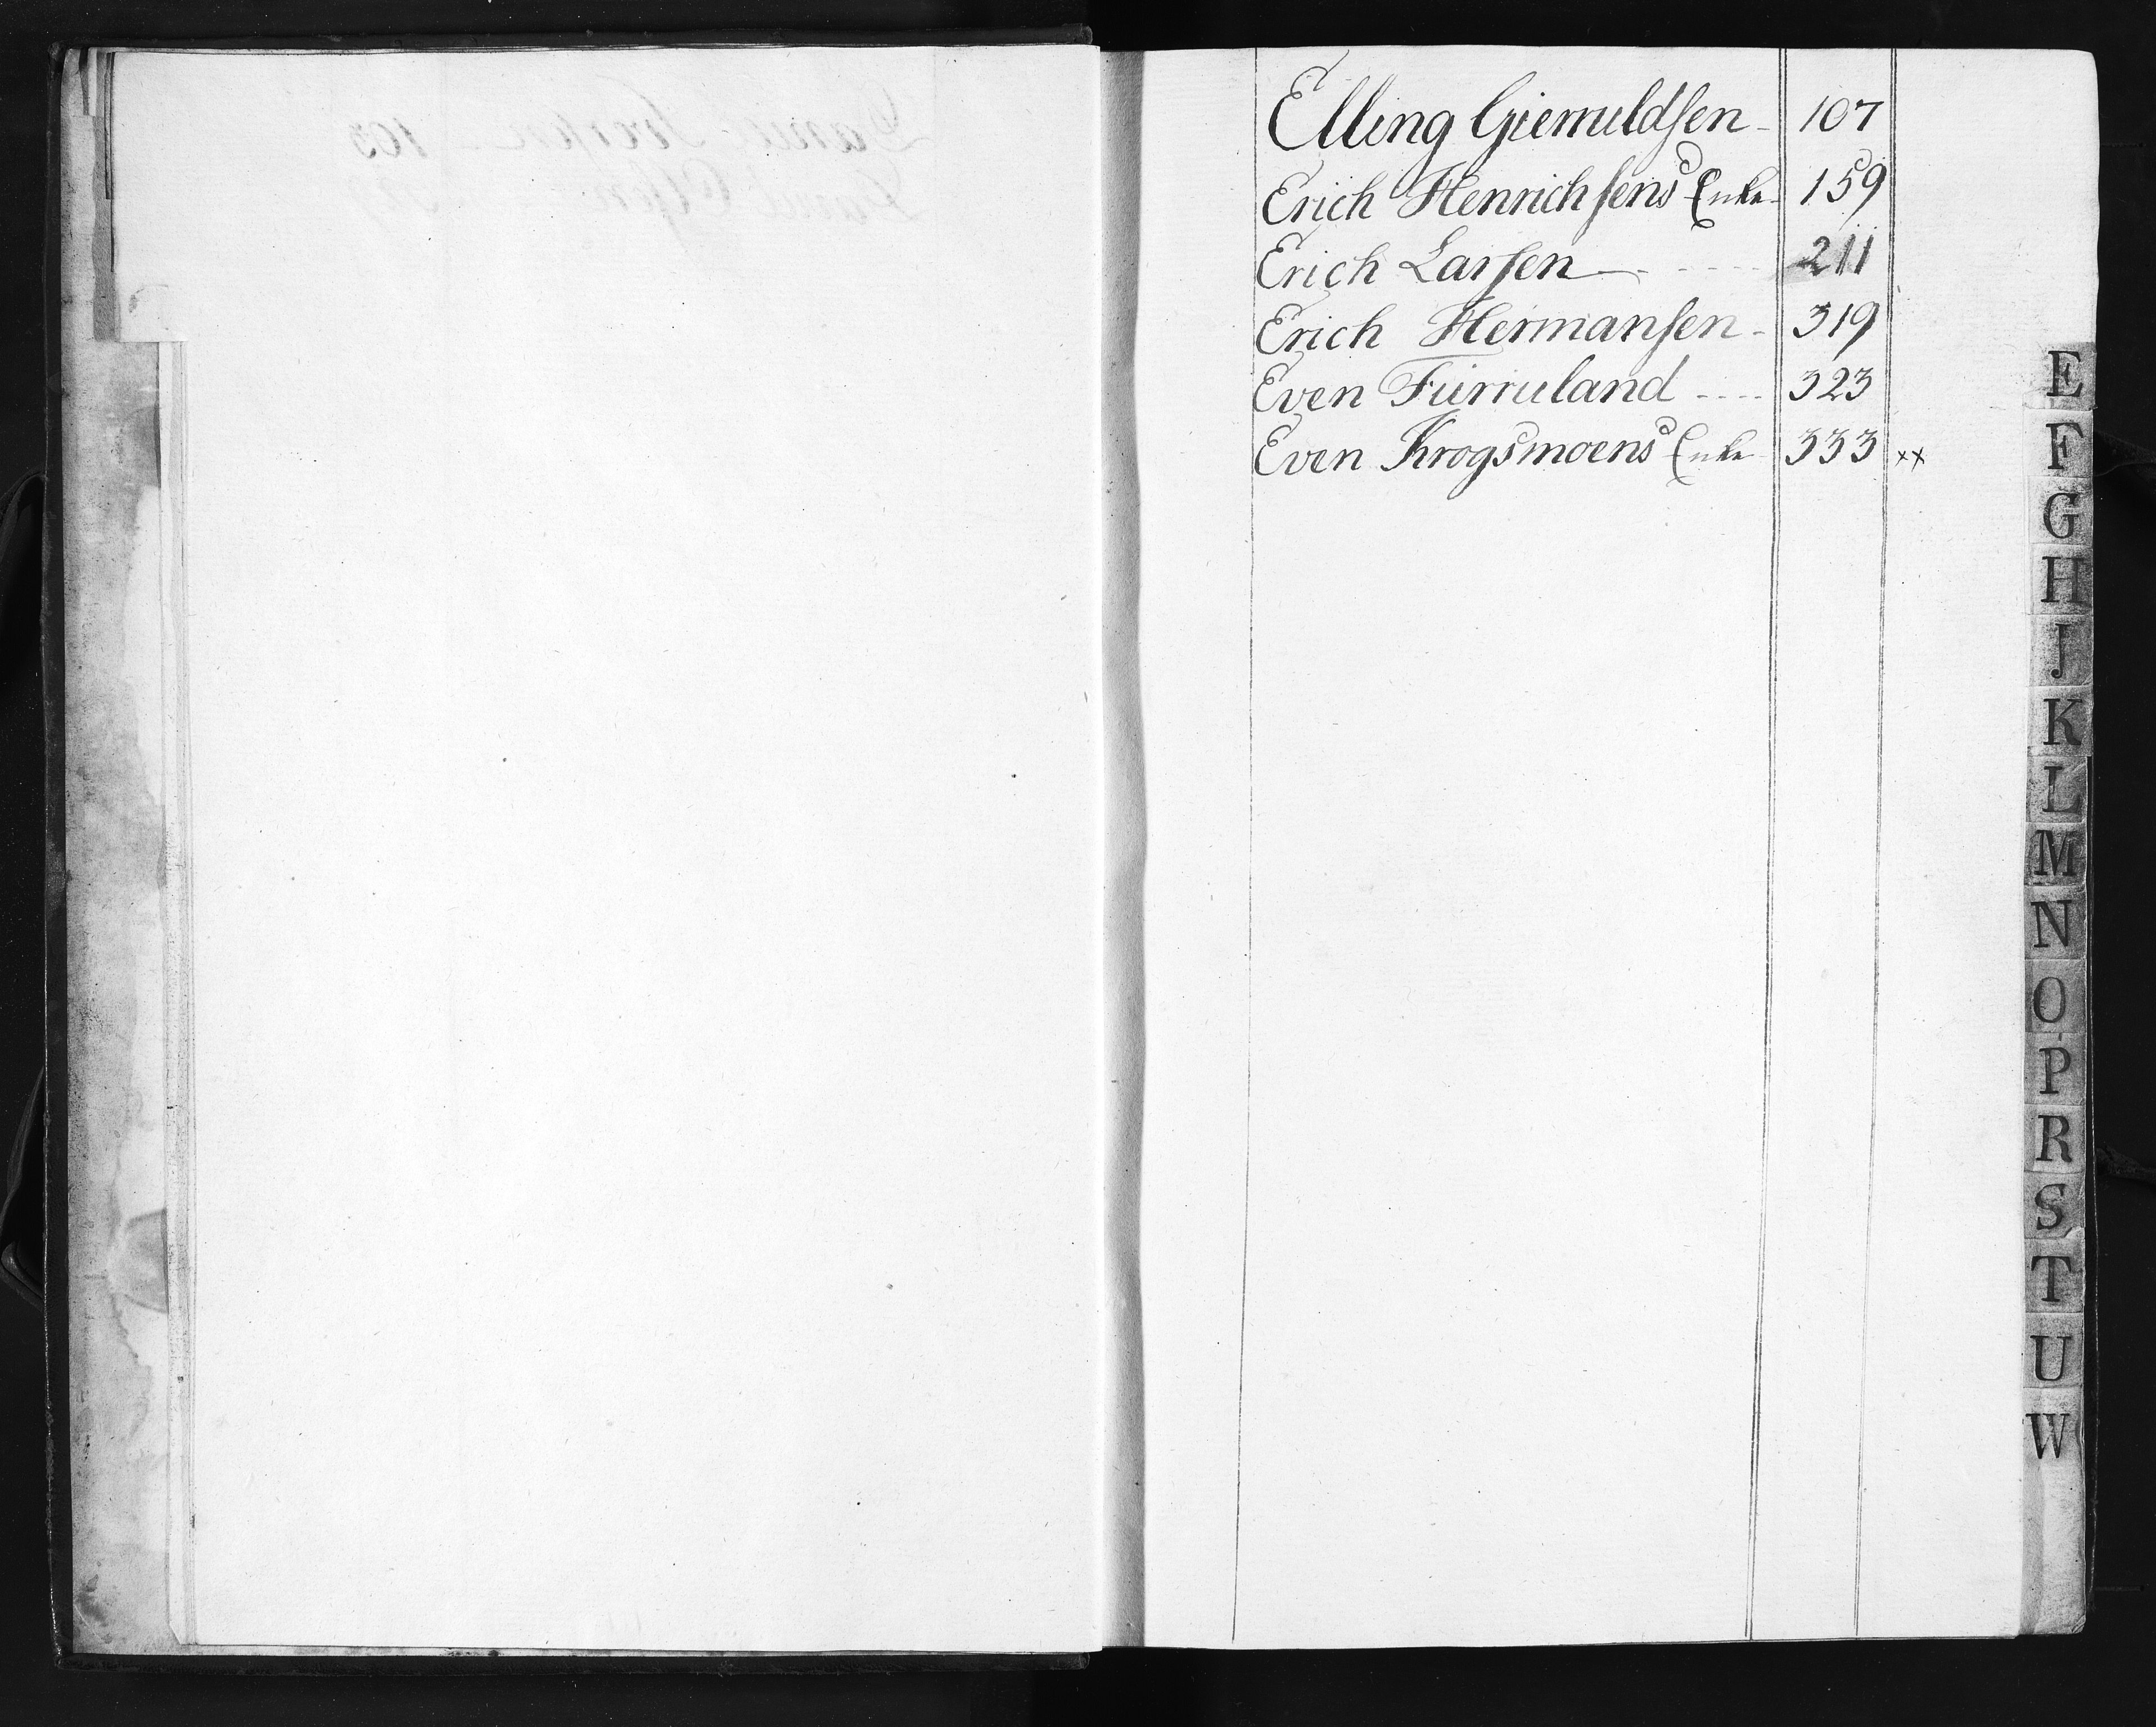 Elling Giermuldsen - 107
Erich Henrichsens Enke - 159
Erich Larsen - - - - 211
Erich Hermansen - 319
Even Furruland - - - - 323
Even Krogsmoens Enke 333 xx
E
F
G
H
J
K
L
M
N
O
P
R
S
T
U
W